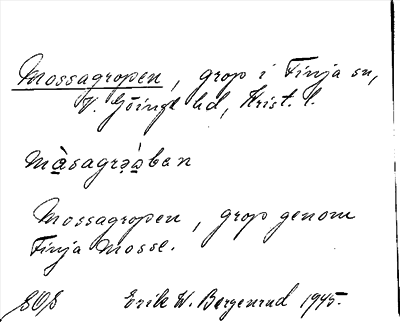 Mossagropen, grop i Finja sn,
V. Göinge hd, Krist. l.
mà̱sagrə̣å̱̀ben
Mossagropen, grop genom
Finja Mosse.
SOS Erik W. Bergenrud 1945.